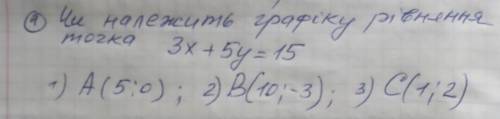 ④ Чи належить графіку рівняння
точка 3x + 5y = 15
1) A (5;0) ; 2) B(10;-3) ; 3) C(1;2)